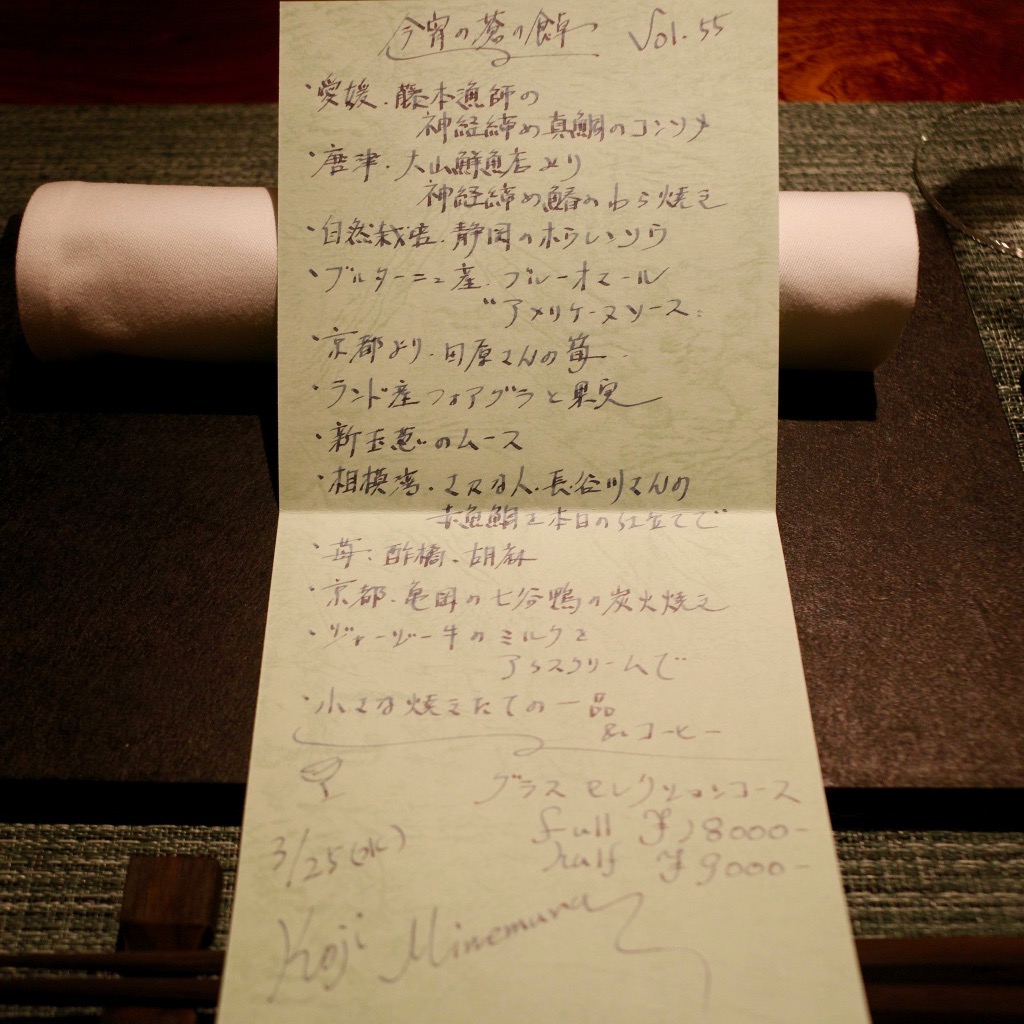 今宵の蒼の食卓 Vol.55
・愛媛.藤本漁師の
神経締め真鯛のコンソメ
・唐津.大山鮮魚店より
神経締め鰆のわら焼き
・自然栽培.静岡のホウレンソウ
・ブルターニュ産.ブルーオマール
"アメリケーヌソース"
・京都より.田原さんの筍
・ランド産フォアグラと果実
・新玉葱のムース
・相模湾.さかな人.長谷川さんの
魚鯛を本日の仕立てで
・苺:酢橘.胡麻
・京都.亀岡の七谷鴨の炭火焼き
・ジャージー牛のミルクを
アイスクリームで
・小さな焼きたての一品
&コーヒー
グラスセレクションコース
full ¥18000-
half ¥9000-
3/25(水)
Koji Minemura